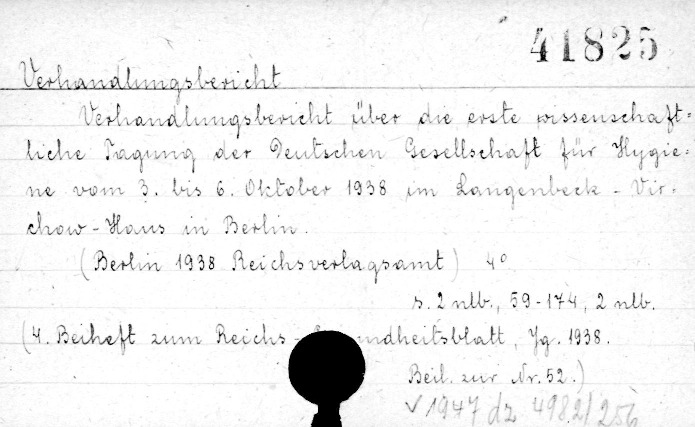 41825
Verhandlungsbericht
Verhandlungsbericht über die erste wissenschaft=
liche Tagung der Deutschen Gesellschaft für Hygie=
ne vom 3. bis 6. Oktober 1938 im Langenbeck - Vir=
chow - Haus in Berlin.
(Berlin 1938 Reichsverlagsamt) 4°
s. 2 nlb., 59-174, 2 nlb.
(4. Beiheft zum Reichs - ndheitsblatt, Jg. 1938.
Beil. zur Nr. 52.)
✓ 1947 dz 4982/256